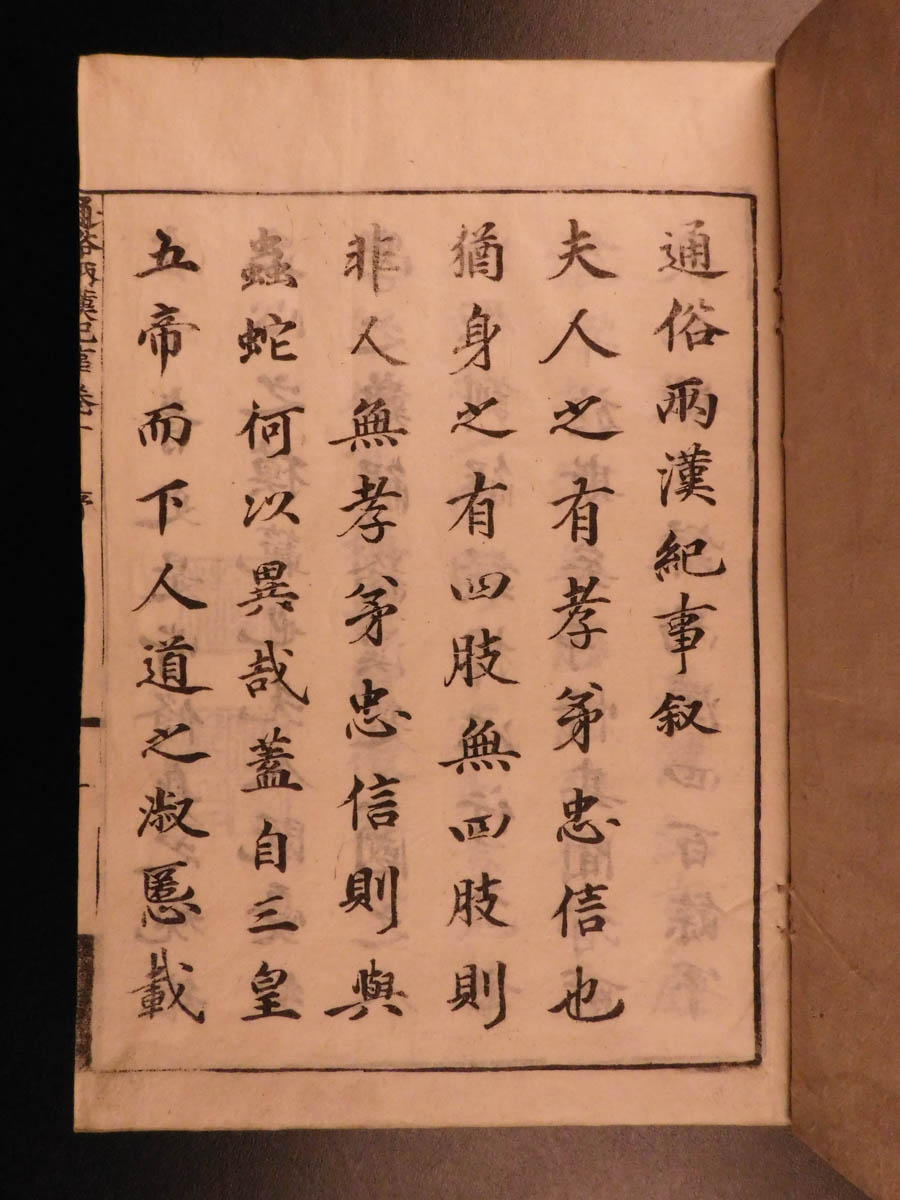 通俗兩漢紀事叙
夫人之有孝弟忠信也
猶身之有四肢無四肢則
非人無孝弟忠信則與
蟲蛇何以異哉蓋自三皇
五帝而下人道之淑慝載
通俗兩漢紀事卷一 序 一